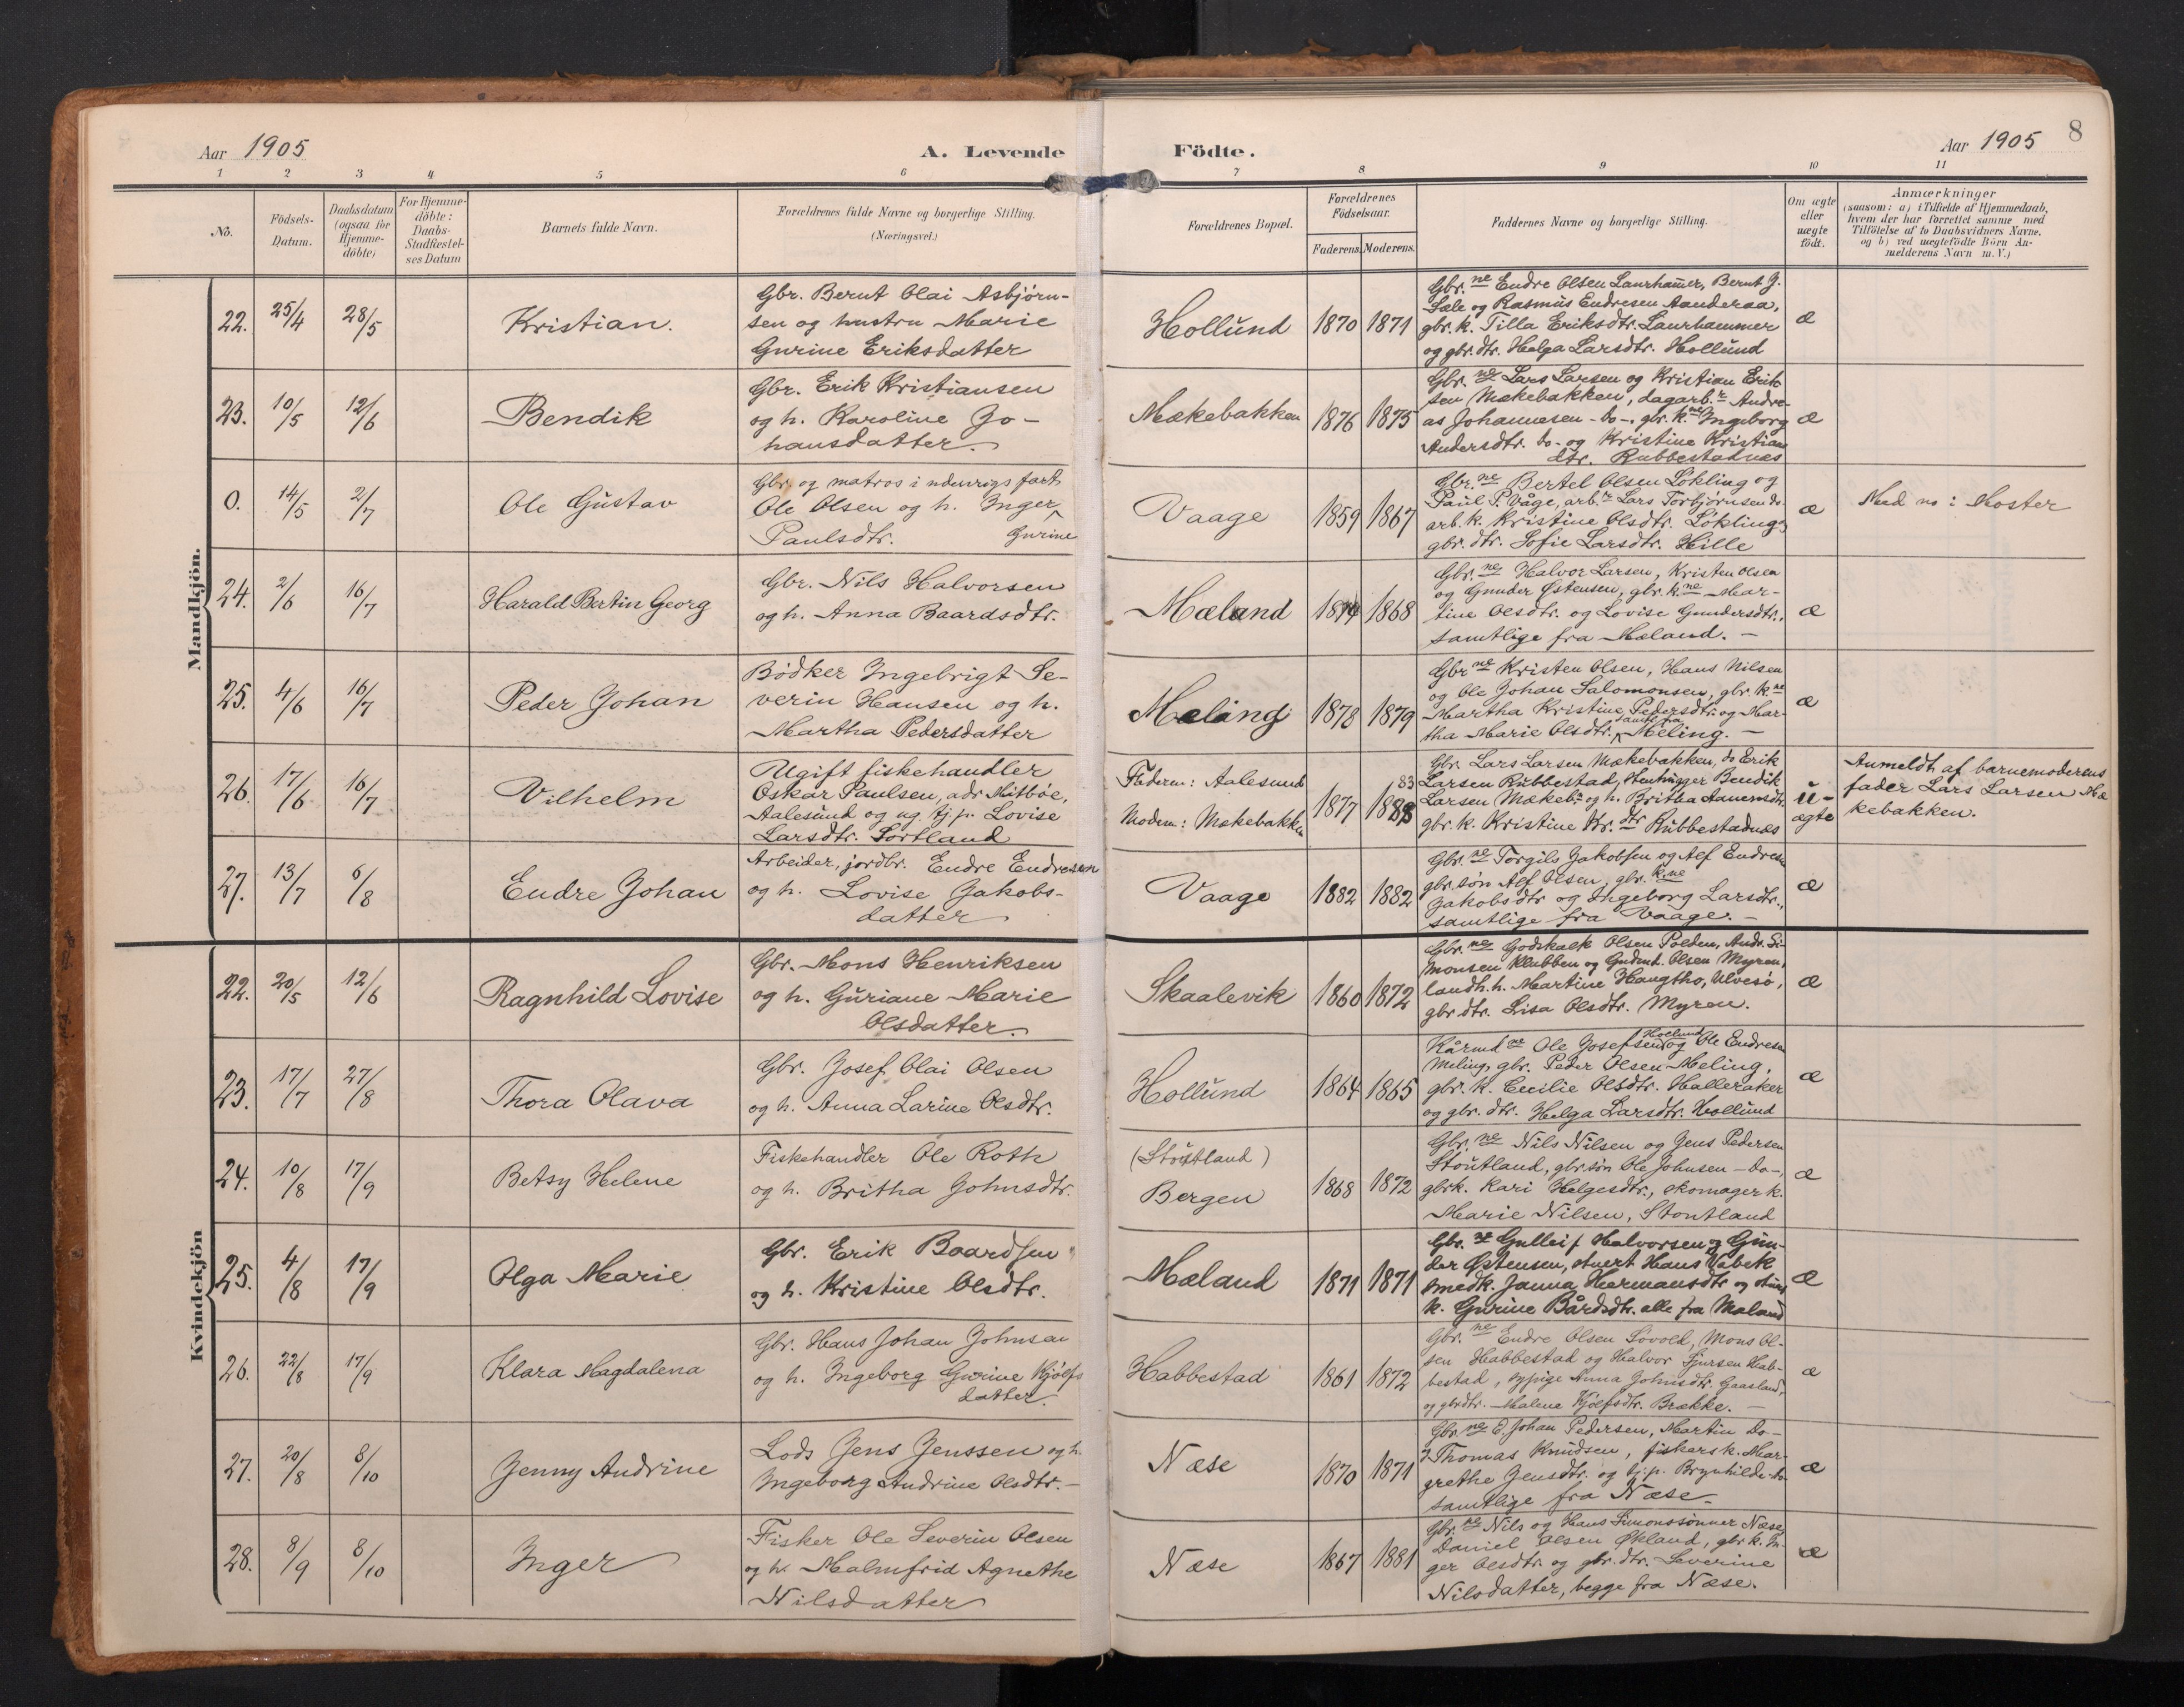 Aar 1905
A. Levende Födte.
Aar 1905
8
1 2 3 4 5 6 7 8 9 10 11
No.
Födsels-Datum.
Daabsdatum (ogsaa for Hjemme-döbte)
For Hjemme-döbte: Daabs-Stadfæstel-ses Datum
Barnets fulde Navn.
Forældrenes fulde Navne og borgerlige Stilling. (Næringsvei.)
Forældrenes Bopæl.
Forældrenes Födselsaar.
Faderens. Moderens.
Faddernes Navne og borgerlige Stilling.
Om ægte eller uægte födt.
Anmærkninger
(saasom: a) i Tilfælde af Hjemmedaab,
hvem der har forrettet samme med
Tilföielse af to Daabsvidners Navne,
og b) ved uægtefödte Börn An-
melderens Navn m. V.)
Mandkjön.
22. 25/4 28/5 Kristian.
Gbr. Bernt Olai Asbjørn-
sen og hustru Marie
Gurine Eriksdatter
Hollund 1870 1871
Gbr.ne Endre Olsen Laurhammer, Bernt J.
Sale og Rasmus Endresen Aanderaa,
gbr. k. Tilla Eriksdtr. Laurhammer
og gbr. dtr. Helga Larsdtr. Hollund
æ
23. 10/5 12/6 Bendik
Gbr. Erik Kristiansen
og h. Karoline Jo-
hansdatter.
Mækebakken 1876 1875
Gbr.ne Lars Larsen og Kristian Erik-
sen Mækebakken, dagarb.r Andre-
as Johannesen -do-, gbr. k.ne Ingeborg
Andersdtr. do- og Kristine Kristians
dtr. Rubbestadnæs
æ
0. 14/5 2/7 Ole Gustav
Gbr. og matros i udenrigs fart
Ole Olsen og h. Inger
Paulsdtr. Gurine
Vaage 1859 1867
Gbr.ne Bertel Olsen Løkling og
Paul P. Våge, arb.r Lars Torbjørnsen do.
arb. k. Kristine Olsdtr. Løkling og
gbr. dtr. Sofie Larsdtr. Hille
æ
Med no: Moster
24. 2/6 16/7 Harald Bertin Georg
Gbr. Nils Halvorsen
og h. Anna Baardsdtr.
Mæland 1874 1868
Gbr.ne Halvor Larsen, Kristen Olsen
og Gunder Østensen, gbr. k.ne Mar-
tine Olsdtr. og Lovise Gundersdtr.,
samtlige fra Mæland. -
æ
25. 4/6 16/7 Peder Johan
Bødker Ingebrigt Se-
verin Hansen og h.
Martha Pedersdatter
Meling 1878 1879
Gbr.ne Kristen Olsen, Hans Nilsen
og Ole Johan Salomonsen, gbr. k.ne
Martha Kristine Pedersdtr. og Mar-
tha Marie Olsdtr. samtl. fra Meling. -
æ
26. 17/6 16/7 Vilhelm
Ugift fiskehandler
Oskar Paulsen, adr Mitboe,
Aalesund og ug. tj. p. Lovise
Larsdtr. Sortland
Faderen: Aalesund
Modern: Mækebakken
1877 83 1888
Gbr. Lars Larsen Mækebakken, do Erik
Larsen Rubbestad, Stenhugger Bendik
Larsen Mækeb.n og h. Britha Aanensdtr
gbr. k. Kristine Kr.dtr Rubbestadnæs
u-ægte
Anmeldt af barnemoderens
fader Lars Larsen Mæ-
kebakken.
27. 13/7 6/8 Endre Johan
Arbeider, jordbr. Endre Endresen
og h. Lovise Jakobs-
datter
Vaage 1882 1882
Gbr.ne Torgils Jakobsen og Alf Endresen
gbr. søn Alf Olsen, gbr. k.ne
Jakobsdtr og Ingeborg Larsdtr.,
samtlige fra Vaage. -
æ
Kvindekjön
22. 20/5 12/6 Ragnhild Lovise
Gbr. Mons Henriksen
og h. Guriane Marie
Olsdatter.
Skaalevik 1860 1872
Gbr.ne Godskalk Olsen Polden, Andr. Si-
monsen Klubben og Gudmd. Olsen Myren,
landh. h. Martine Haugtho, Ulvesø,
gbr dtr. Lisa Olsdtr. Myren.
æ
23. 17/7 27/8 Thora Olava
Gbr. Josef Olai Olsen
og h. Anna Larine Olsdtr.
Hollund 1864 1865
Kårmd ne Ole Josefsen Hollund og Ole Endresen
Meling, gbr. Peder Olsen Meling,
gbr. k. Cecilie Olsdtr. Halleraker
og gbr. dtr. Helga Larsdtr. Hollund
æ
24. 10/8 17/9 Betsy Helene
Fiskehandler Ole Roth
og h. Britha Johnsdtr.
(Stoutland)
Bergen 1868 1872
Gbr.ne Nils Nilsen og Jens Pedersen
Stoutland, gbr. søn Ole Johnsen -do-,
gbrk. Kari Helgesdtr., skomager k.
Marie Nilsen, Stoutland
æ
25. 4/8 17/9 Olga Marie
Gbr. Erik Baardsen
og h. Kristine Olsdtr.
Mæland 1871 1871
Gbr.ne Gulleif Halvorsen og Gun-
der Østensen, stuert Hans Vabek
smedk. Janna Hermansdtr og
k. Gurine Bårdsdtr. alle fra Mæland
æ
26. 22/8 17/9 Klara Magdalena
Gbr. Hans Johan Johnsen
og h. Ingeborg Gurine Kjölfs
datter.
Habbestad 1861 1872
Gbr.ne Endre Olsen Løvold, Mons Ol-
sen Habbestad og Halvor Sjursen Hab-
bestad, sypige Anna Johnsdtr. Gaasland,
og gbrdtr. Malene Kjölfsdtr. Brække. -
æ
27. 20/8 8/10 Jenny Andrine
Lods Jens Jenssen og h.
Ingeborg Andrine Olsdtr. -
Næse 1870 1871
Gbr.ne E. Johan Pedersen, Martin Do-
Thomas Knudsen, fiskersk. Mar-
grethe Jensdtr. og tj. p. Brynhilde do
samtlige fra Næse.
æ
28. 8/9 8/10 Inger
Fisker Ole Severin Olsen
og h. Malmfrid Agnethe
Nilsdatter
Næse 1867 1881
Gbr.ne Nils og Hans Simonssønner Næse,
Daniel Olsen Økland, gbr k. In-
ger Olsdtr. og gbr. dtr. Severine
Nilsdatter, begge fra Næse.
æ